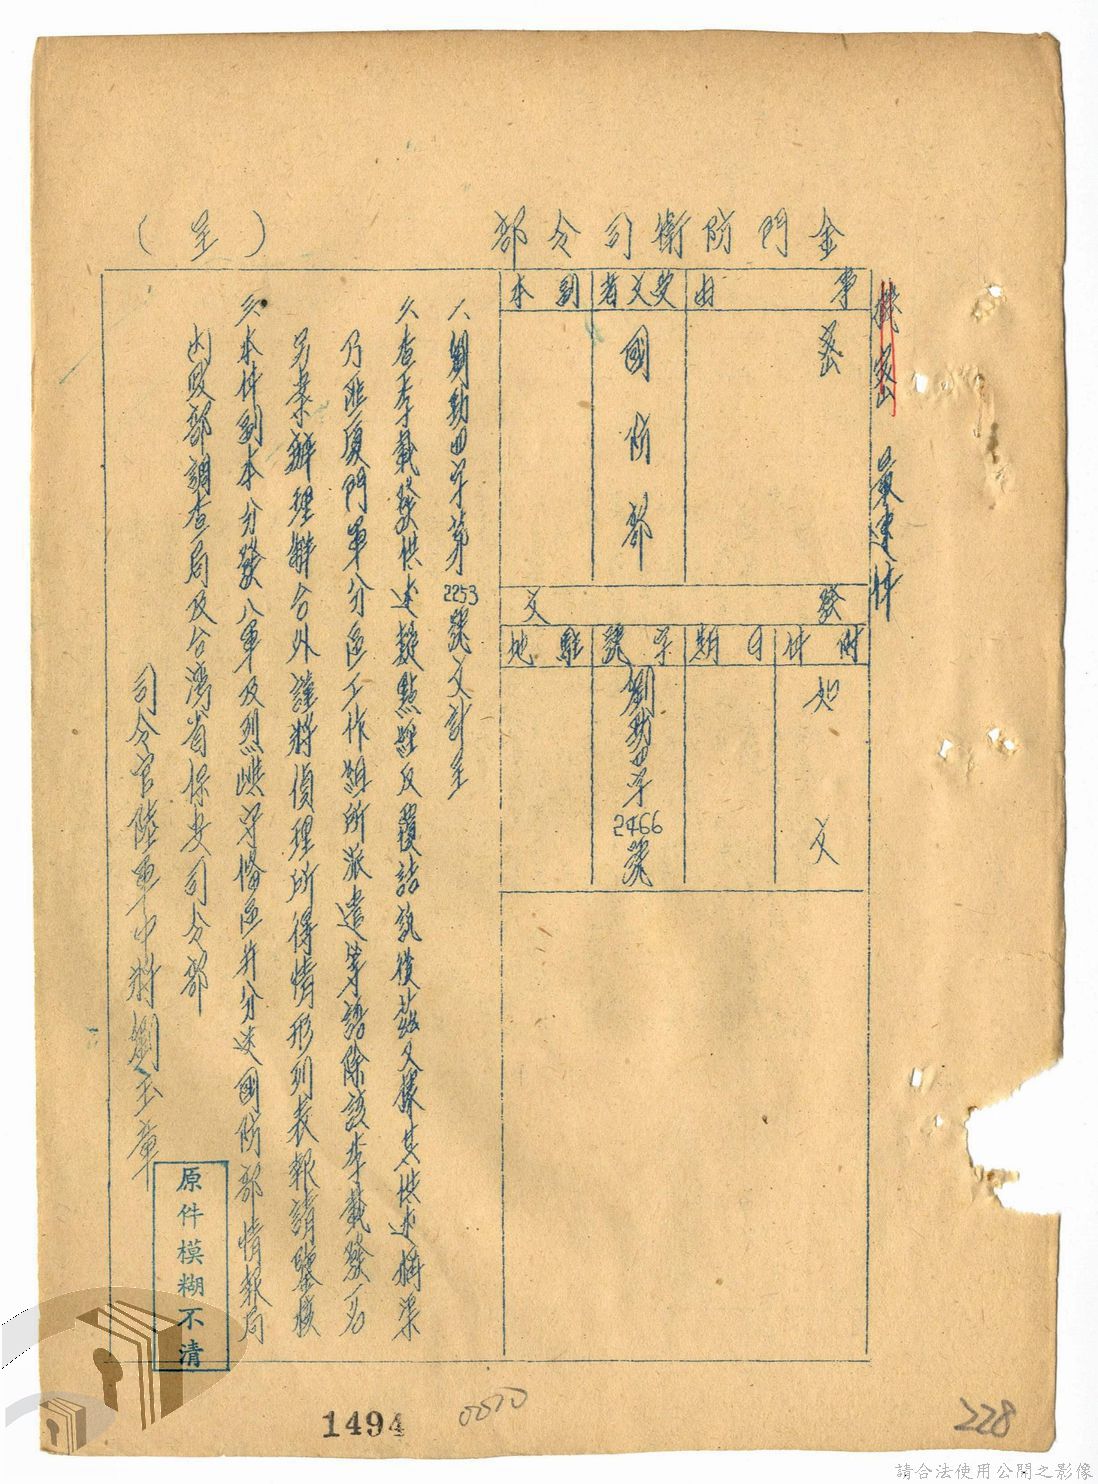 金門防衛司令部（呈）
機密 最速件
事由
密
受文者
國防部
副本
發文
附件
如文
日期
字號
劉勛四字第2466號
駐地
一、劉勛四字第2253號文計呈
二、查李載發供述疑點經反覆詰訊後茲又據其供述稱渠
乃匪厦門軍分區工作組所派遣等語除該李載發一名
另案辦理外謹將偵理所得情形列表報請鑒核
三、本件副本分發八軍及烈嶼守備區并分送國防部情報局
內政部調查局及台湾省保安司令部
司令官陸軍中將劉玉章
原件模糊不清
1494
0070
228
請合法使用公開之影像